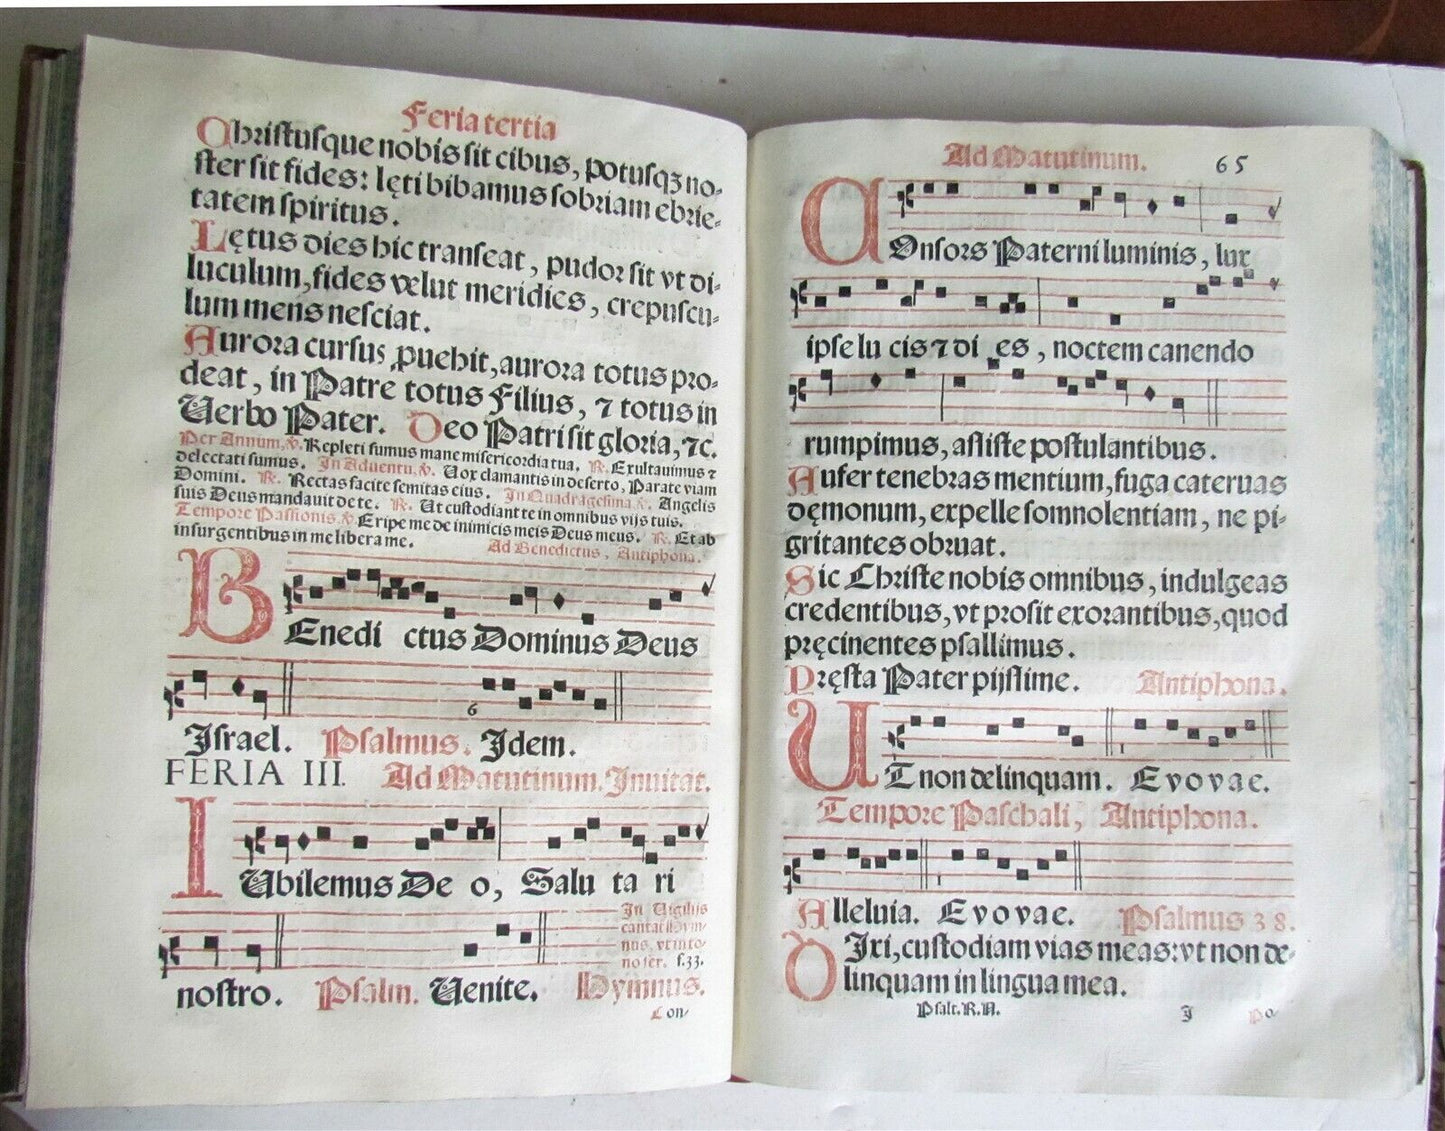 Feria tertia
Christusque nobis sit cibus, potusqȝ no-
ster sit fides: lęti bibamus sobriam ebrie-
tatem spiritus.
Lętus dies hic transeat, pudor sit vt di-
luculum, fides velut meridies, crepuscu-
lum mens nesciat.
Aurora cursus ꝓuehit, aurora totus pro-
deat, in Patre totus Filius, ⁊ totus in
Verbo Pater. Deo Patri sit gloria, ⁊c.
Per Annum, ℣. Repleti sumus mane misericordia tua. ℟. Exultauimus ⁊
delectati sumus. In Aduentu, ℣. Vox clamantis in deserto, Parate viam
Domini. ℟. Rectas facite semitas eius. In Quadragesima ℣. Angelis
suis Deus mandauit de te. ℟. Ut custodiant te in omnibus vijs tuis.
Tempore Passionis ℣. Eripe me de inimicis meis Deus meus. ℟. Et ab
insurgentibus in me libera me. Ad Benedictus, Antiphona.
BEnedi ctus Dominus Deus
6
Israel. Psalmus. Idem.
FERIA III. Ad Matutinum. Inuitat.
IUbilemus De o, Salu ta ri
In Vigilijs
cantat Hym-
nus, vt in to-
no fer. f.33.
nostro. Psalm. Venite. Hymnus.
Con-
Ad Matutinum. 65
COnsors Paterni luminis, lux
ipse lu cis ⁊ di es, noctem canendo
rumpimus, assiste postulantibus.
Aufer tenebras mentium, fuga cateruas
dęmonum, expelle somnolentiam, ne pi-
gritantes obruat.
Sic Christe nobis omnibus, indulgeas
credentibus, vt prosit exorantibus, quod
pręcinentes psallimus.
Pręsta Pater pijssime. Antiphona.
UT non delinquam. Evovae.
Tempore Paschali, Antiphona.
Alleluia. Evovae. Psalmus 38.
DIxi, custodiam vias meas: vt non de-
linquam in lingua mea.
Psalt. R. A. I Po-